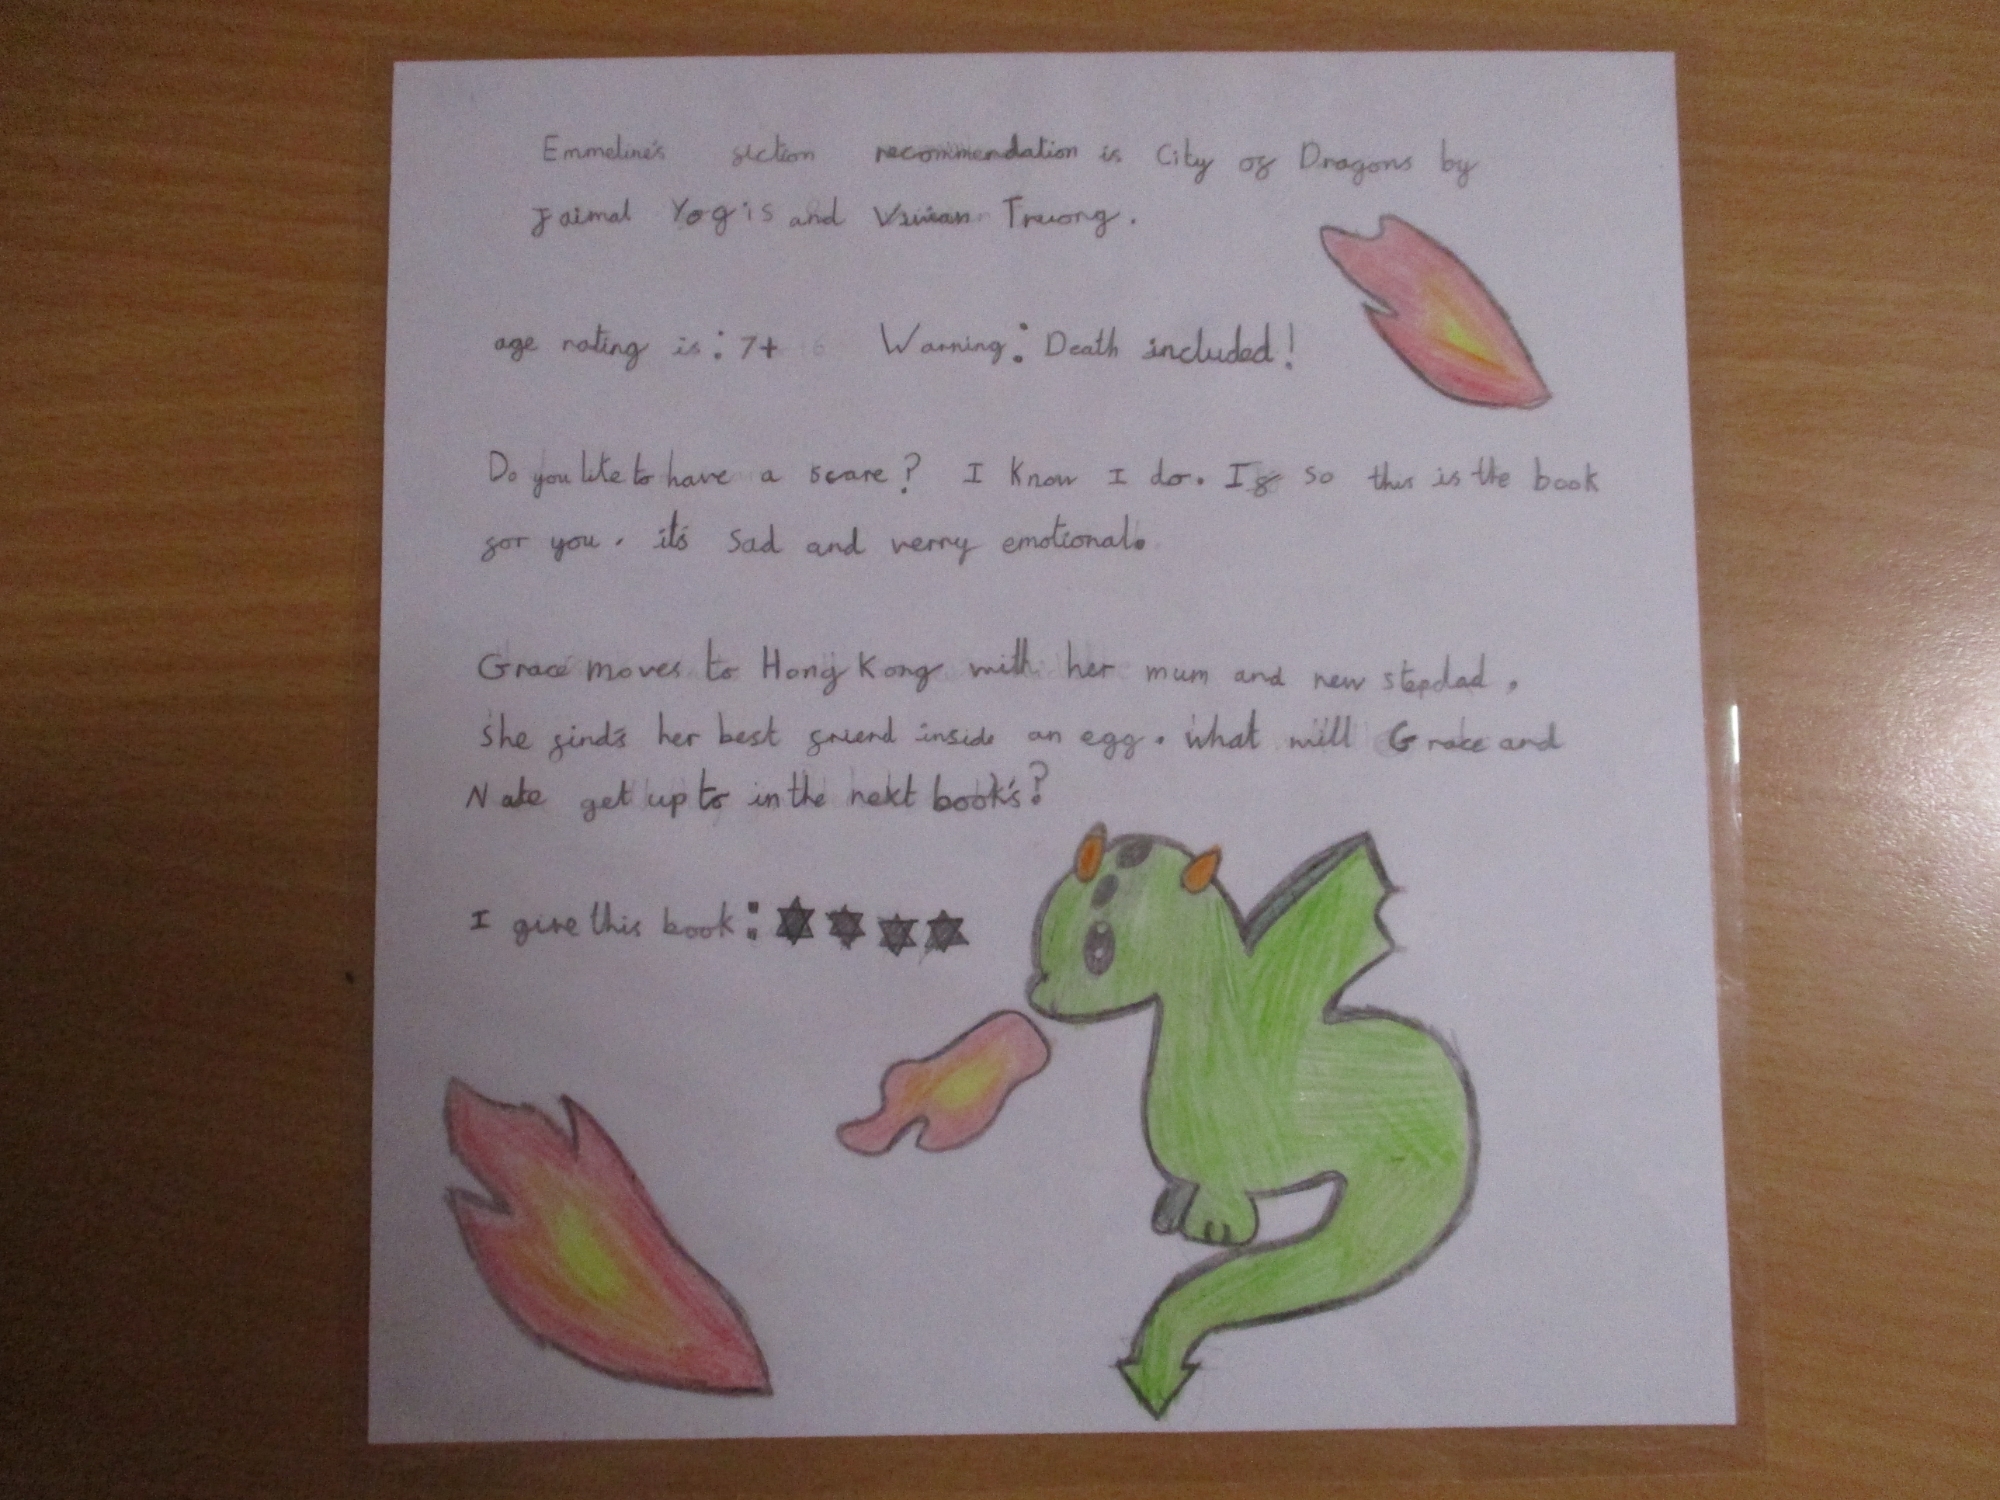 Emmeline's fiction recommendation is City of Dragons by
Jaimal Yogis and Vivian Truong.
age rating is: 7+ Warning: Death included!
Do you like to have a scare? I know I do. If so this is the book
for you. it's sad and verry emotional.
Grace moves to Hong Kong with her mum and new stepdad.
She find's her best friend inside an egg. what will Grace and
Nate get up to in the next book's?
I give this book: ★★★★